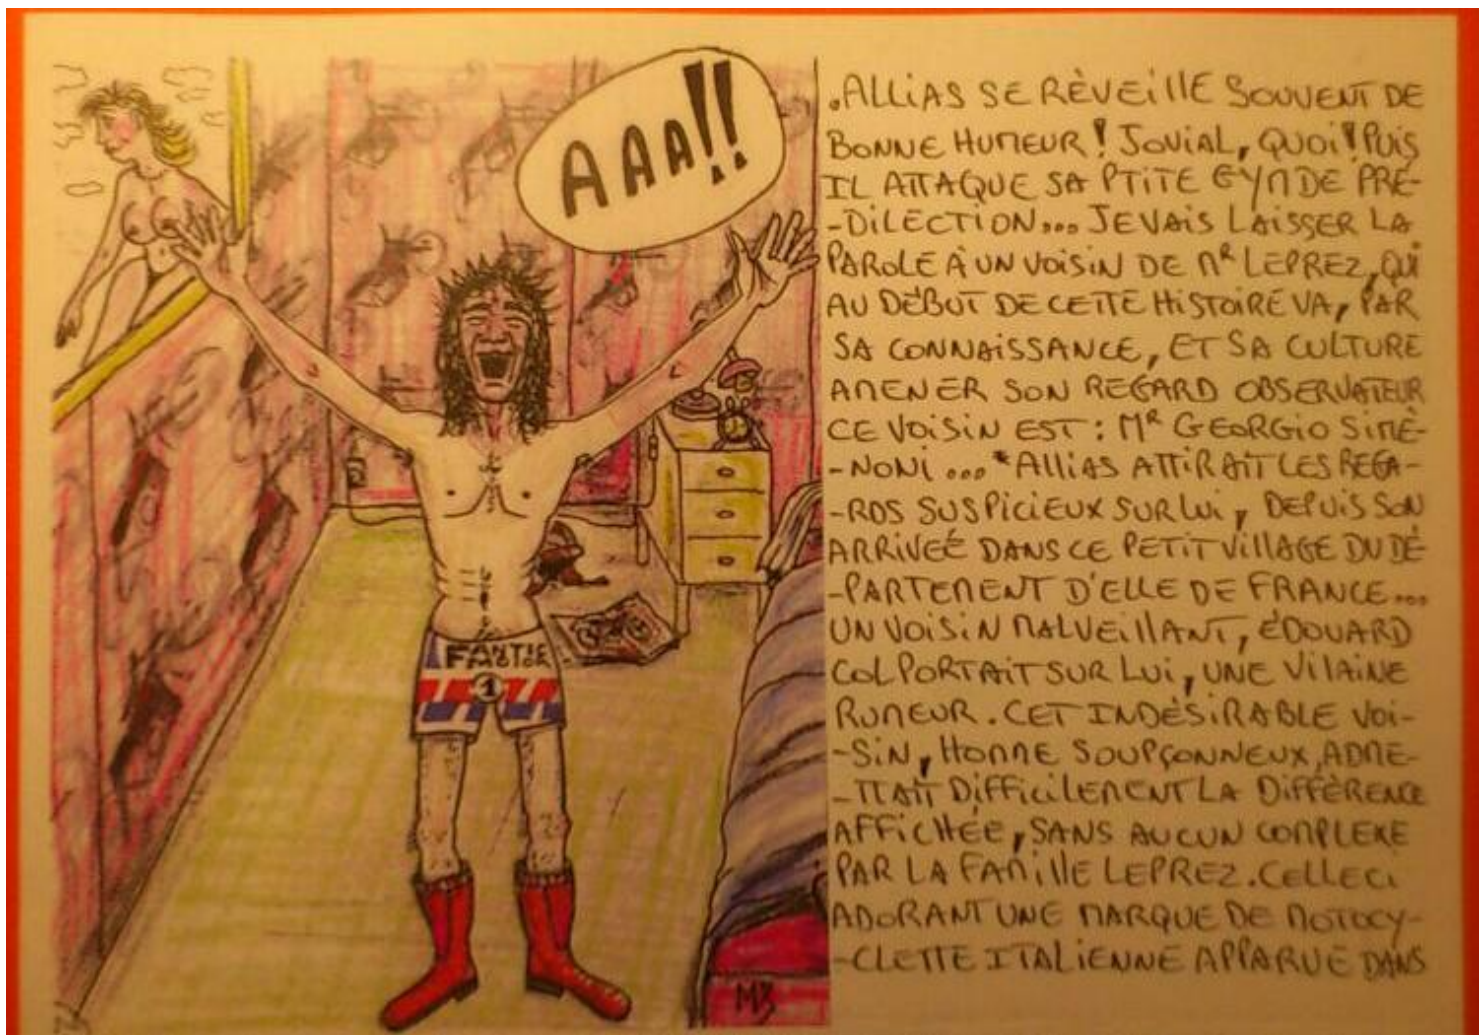 AAA!!
FANTIC
MOTOR
1
MB
.ALLIAS SE RÈVEILLE SOUVENT DE
BONNE HUMEUR! JOVIAL, QUOI! PUIS
IL ATTAQUE SA PTITE GYM DE PRÉ-
-DILECTION... JE VAIS LAISSER LA
PAROLE À UN VOISIN DE MR LEPREZ, QUI
AU DÉBUT DE CETTE HISTOIRE VA, PAR
SA CONNAISSANCE, ET SA CULTURE
AMENER SON REGARD OBSERVATEUR
CE VOISIN EST: MR GEORGIO SIMÈ-
-NONI..."ALLIAS ATTIRAIT LES REGA-
-RDS SUSPICIEUX SUR LUI, DEPUIS SON
ARRIVEÉ DANS CE PETIT VILLAGE DU DÉ-
-PARTEMENT D'ELLE DE FRANCE...
UN VOISIN MALVEILLANT, ÉDOUARD
COLPORTAIT SUR LUI, UNE VILAINE
RUMEUR. CET INDÈSIRABLE VOI-
-SIN, HOMME SOUPÇONNEUX, ADME-
-TTAIT DIFFICILEMENT LA DIFFÈRENCE
AFFICHÉE, SANS AUCUN COMPLEXE
PAR LA FAMILLE LEPREZ. CELLECI
ADORANT UNE MARQUE DE MOTOCY-
-CLETTE ITALIENNE APPARUE DANS